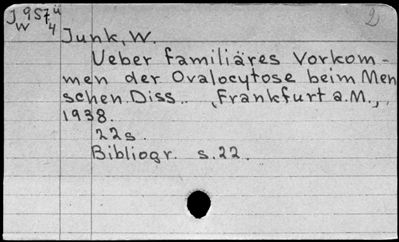 J 957 ü
W 4
2
Junk, W.
Ueber familiäres Vorkom-
men der Ovalocytose beim Men
schen. Diss.. , Frankfurt a.M.,
1938.
22s.
Bibliogr. s.22.